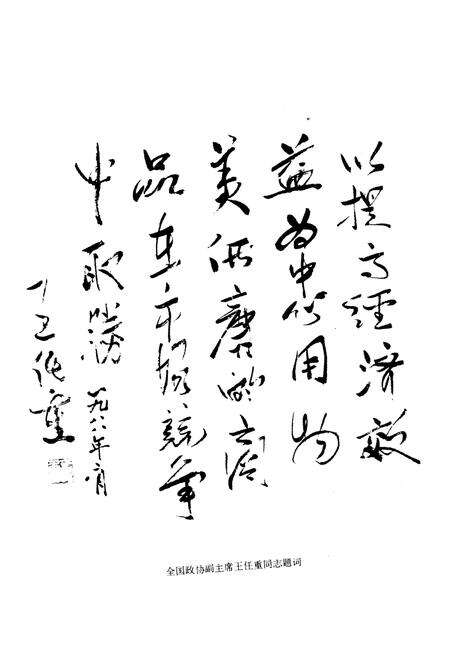 以提高经济效
益为中心用物
美价廉的商
品在市场竞争
中取胜
一九八八年
王任重
全国政协副主席王任重同志题词